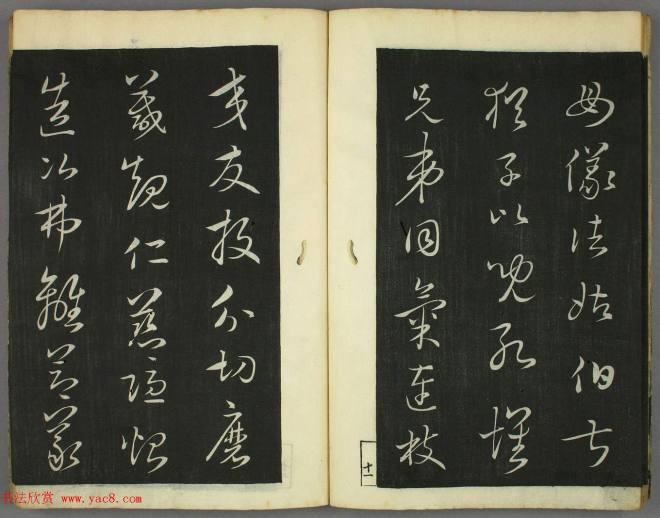 母儀諸姑伯叔
猶子比兒孔懷
兄弟同氣連枝
十一
交友投分切磨
箴規仁慈隱惻
造次弗離節義
书法欣赏 www.yac8.com